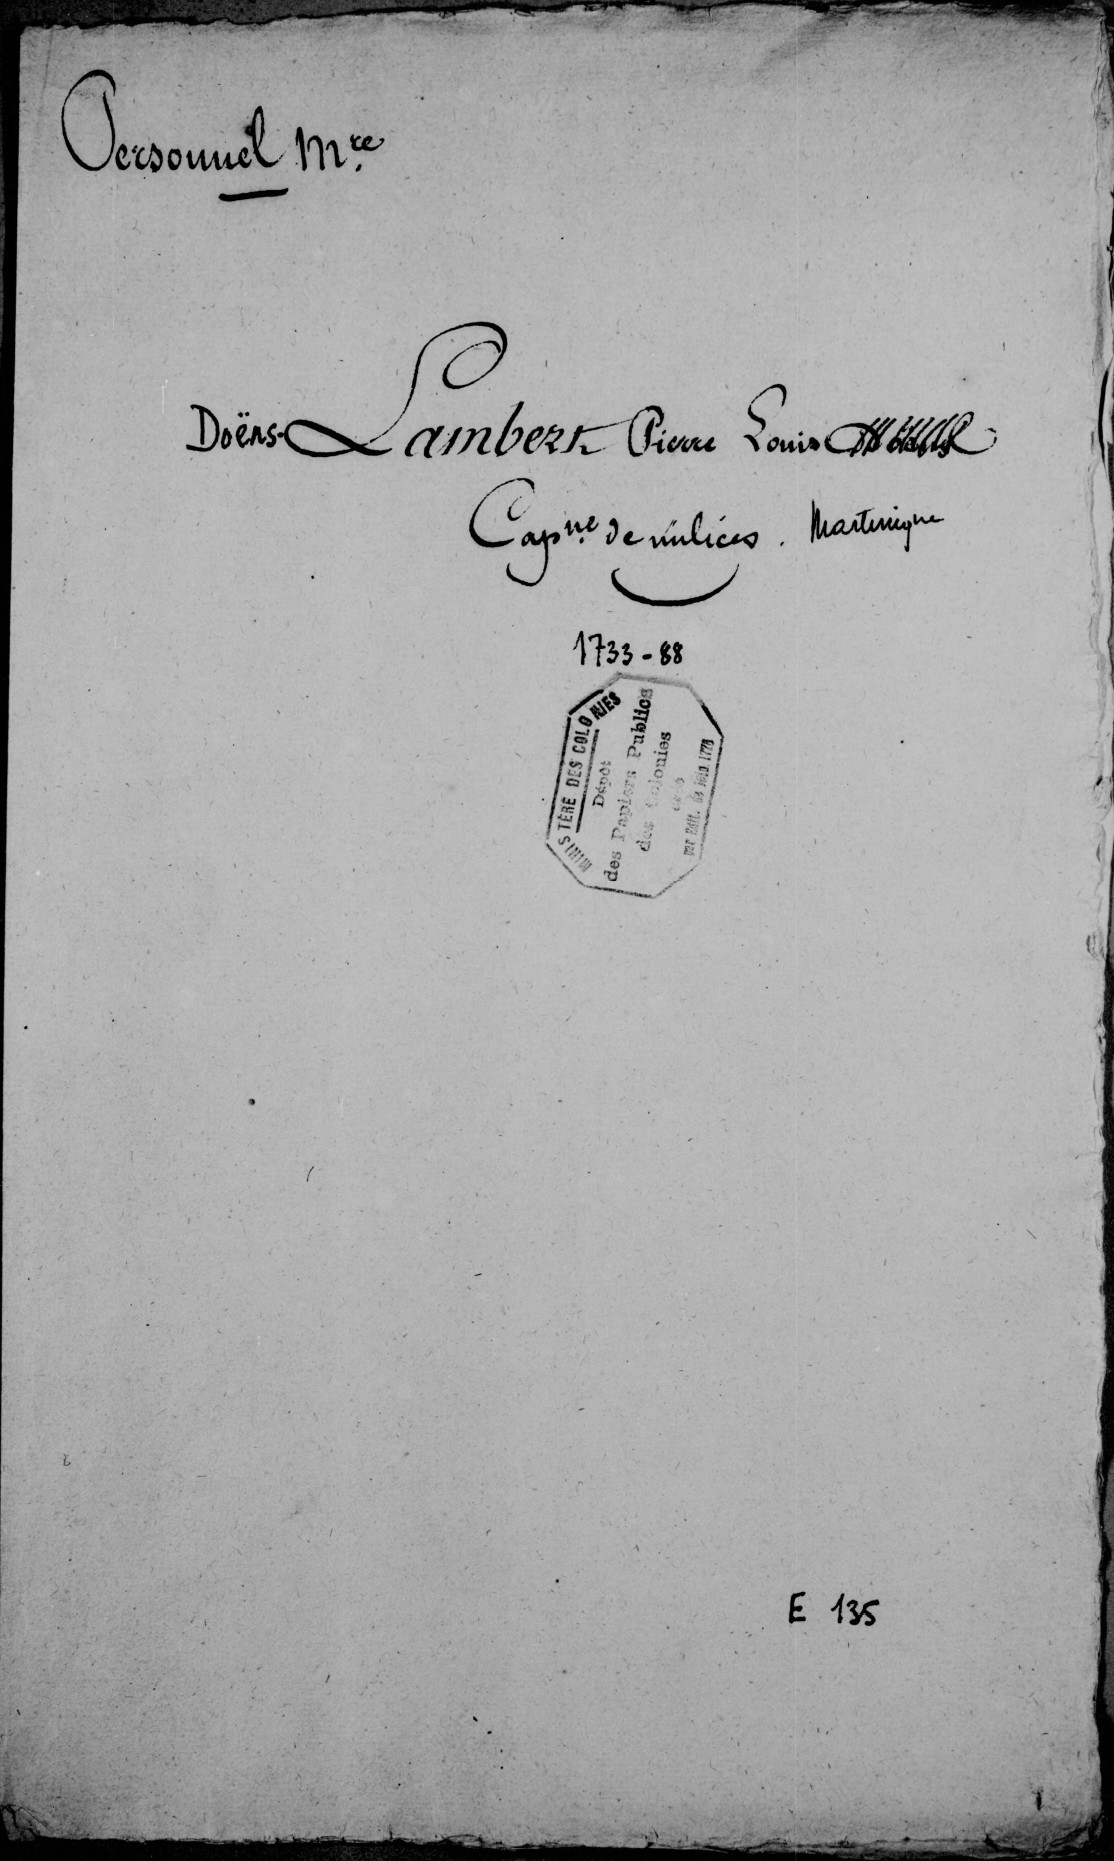 Personnel Mre
Doëns-Lambert Pierre Louis
Capne de milices. Martinique
1733-88
MINISTÈRE DES COLONIES
Dépôt
des Papiers Publics
des Colonies
par Edit. de Juin 1776
E 135